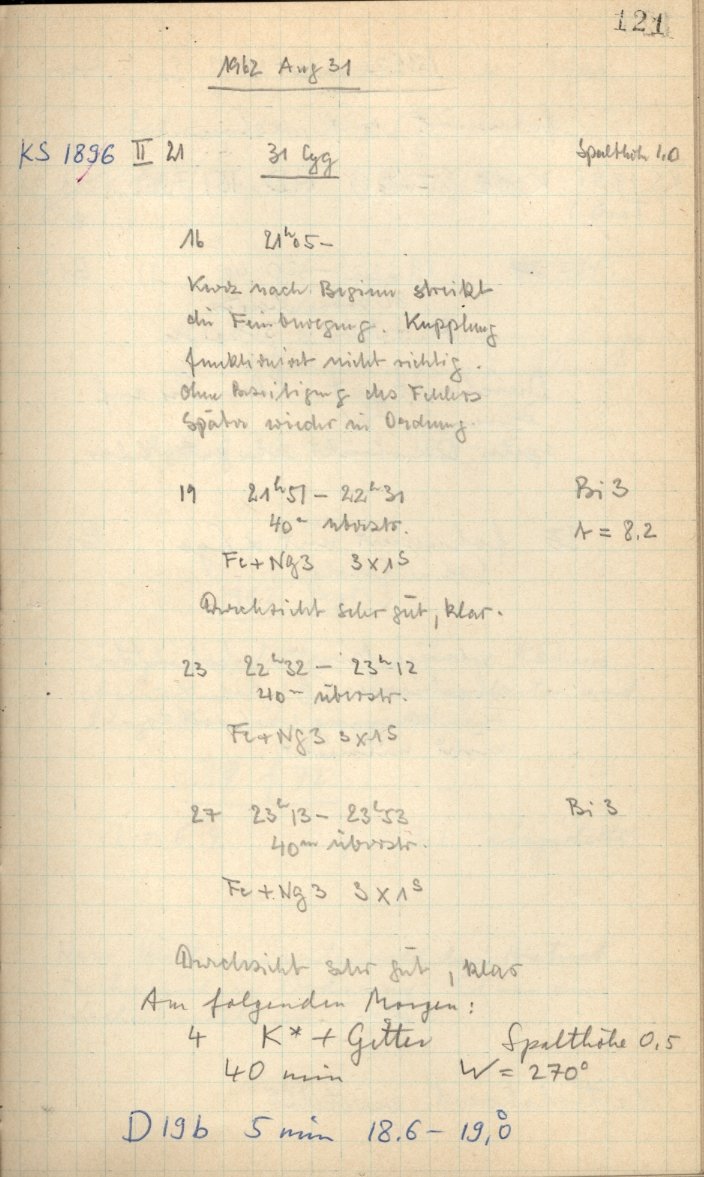 121
1962 Aug 31
KS 1896 II 21 31 Cyg Spalthöhe 1,0
16 21ʰ05–
Kurz nach Beginn streikt
die Feinbewegung. Kupplung
funktioniert nicht richtig.
Ohne Beseitigung des Fehlers
später wieder in Ordnung.
19 21ʰ51 – 22ʰ31 Bi 3
40ᵐ überstr. = 8.2
Fe+Ng3 3x1ˢ
Durchsicht sehr gut, klar.
23 22ʰ32 – 23ʰ12
40ᵐ überstr.
Fe+Ng3 3x1ˢ
27 23ʰ13 – 23ʰ53 Bi 3
40ᵐ überstr.
Fe+Ng3 3x1ˢ
Durchsicht sehr gut, klar
Am folgenden Morgen:
4 K* + Gitter Spalthöhe 0,5
40 min W = 270°
D19b 5 min 18.6 – 19,0°